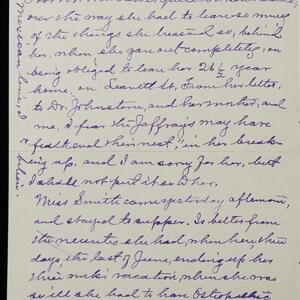 over she may she had to leave so much
of the things she treasured so, behind
her, when she gave out completely, on
being obliged to leave her 24½ year
home, on Leavett St. From her letter,
to Dr. Johnstone, and her mother, and
me, I fear the Jaffrays may have
"feathered their nest" in her break-
ing up, and I am sorry for her, but
I shall not put it so to her.
Miss Smith came yesterday afternoon,
and stayed to supper. Is better from
the neuritis she had, when here three
days the last of June, ending up her
three weeks vacation, when she was
so ill she had to have Osteopathic